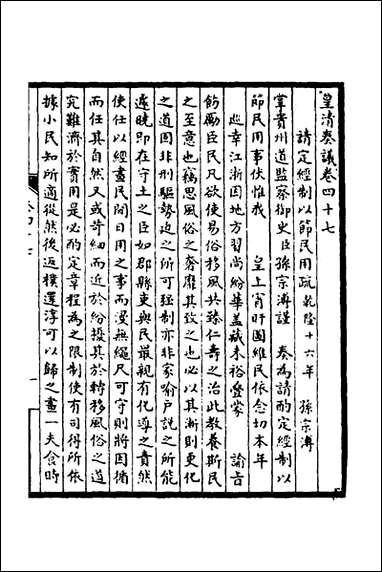 皇清奏議卷四十七
請定經制以節民用疏乾隆十六年 孫宗溥
掌貴州道監察御史臣孫宗溥謹 奏為請酌定經制以
節民用事伏惟我 皇上宵旰圖維民依念切本年
巡幸江浙因地方習尚紛華蓋藏未裕疊蒙 諭旨
飭勵臣民凡欲使易俗移風共臻仁壽之治此教養斯民
之至意也竊思風俗之奢靡其致之也必以其漸則更化
之道固非刑驅勢迫之所可強制亦非家喻户說之所能
遽曉即在守土之臣如郡縣吏與民最親有化導之責然
使任以經畫民間日用之事而漫無繩尺可守則將因循
而任其自然又或苛細而近於紛擾其於轉移風俗之道
究難濟於實用是必酌定章程為之限制使有司得所依
據小民知所適從然後返樸還淳可以歸之畫一夫食時